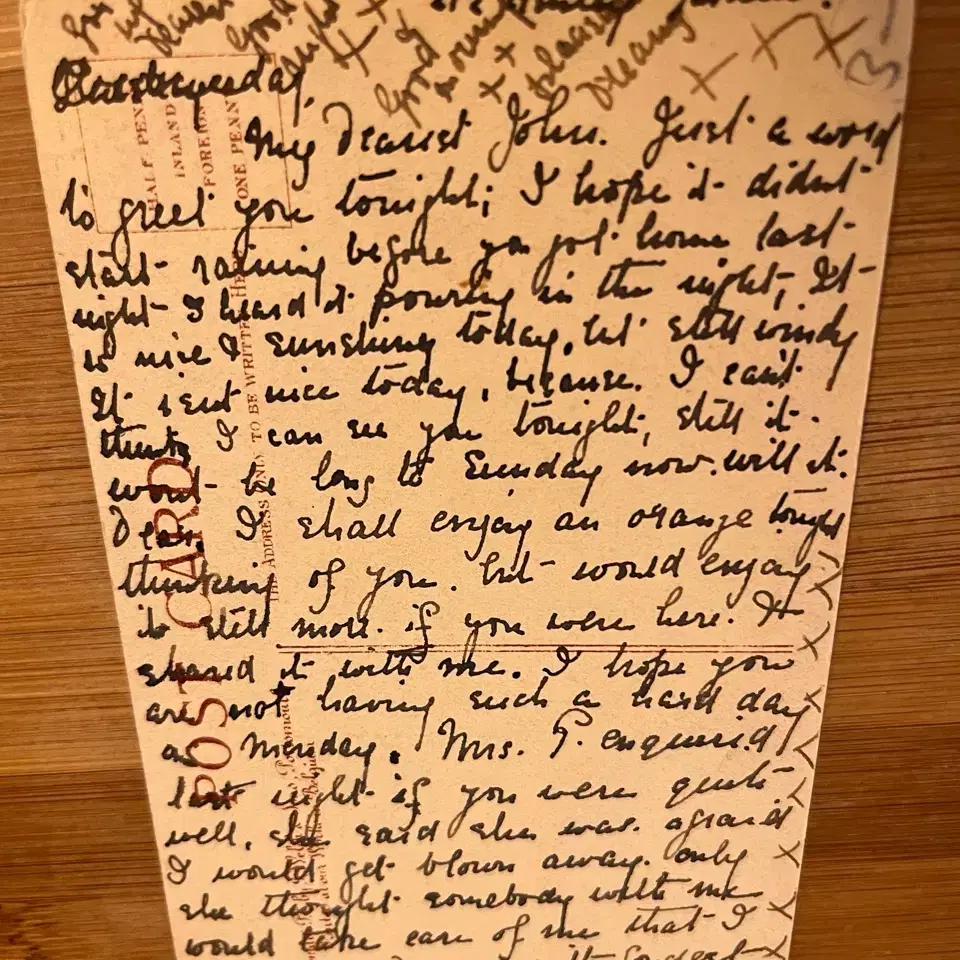 Good
Good
morning
x x
pleasant
Dreams
x x x
My dearest John. Just a word
to greet you tonight; I hope it didnt
start raining before you got home last
night I heard it pouring in the night, It
is nice & sunshiny today, but still windy
It isnt nice today, because. I can't
think I can see you tonight, still it
wont be long to Sunday now. will it.
Dear. I shall enjoy an orange tonight
thinking of you. but would enjoy
it still more. if you were here. to
shared it with me. I hope you
are not having such a hard day
as Monday. Mrs. P. enquired
last night if you were quite
well, she said she was. afraid
I would get blown away. only
she thought somebody with me
would take care of me that I
POST CARD
THE ADDRESS ONLY TO BE WRITTEN HERE
HALF PENNY
INLAND
FOREIGN
ONE PENNY